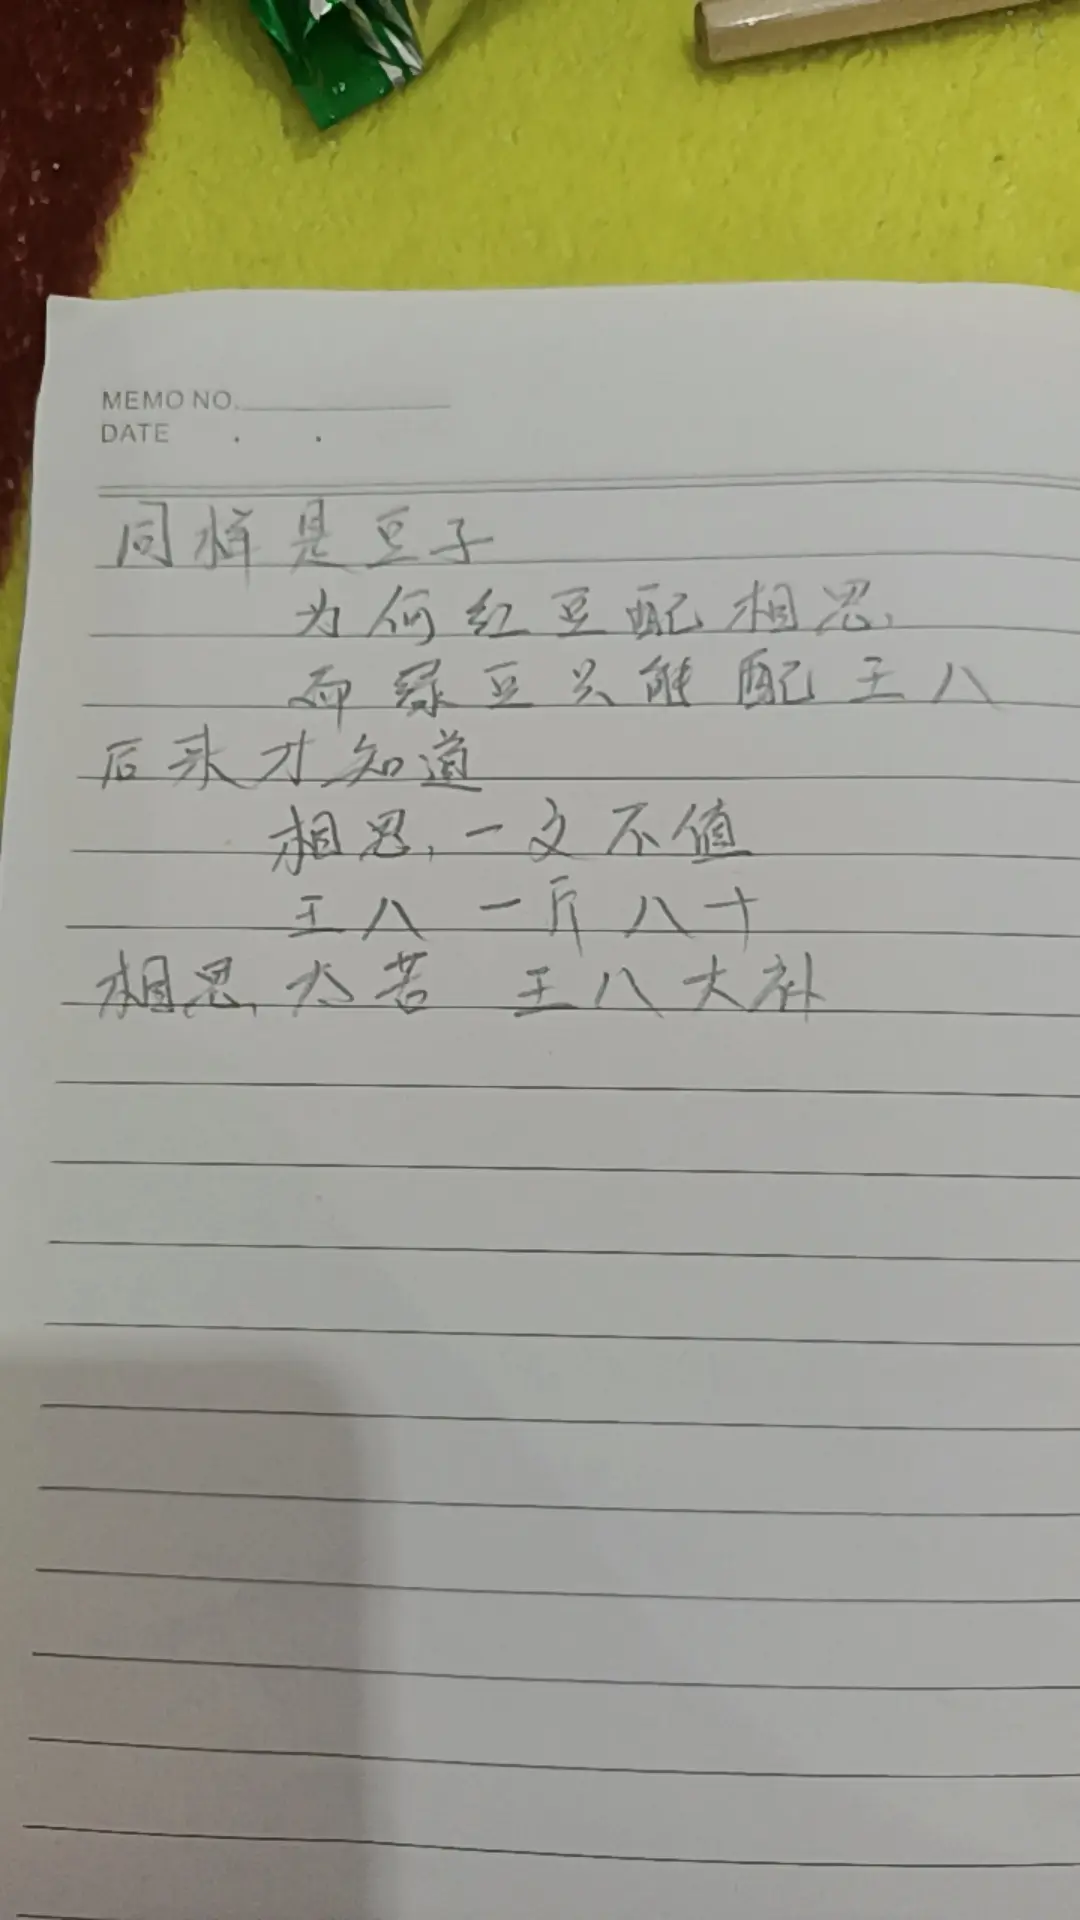 MEMO NO.
DATE . .
同样是豆子
为何红豆配相思,
而绿豆只能配王八
后来才知道
相思,一文不值
王八一斤八十
相思,太苦 王八大补